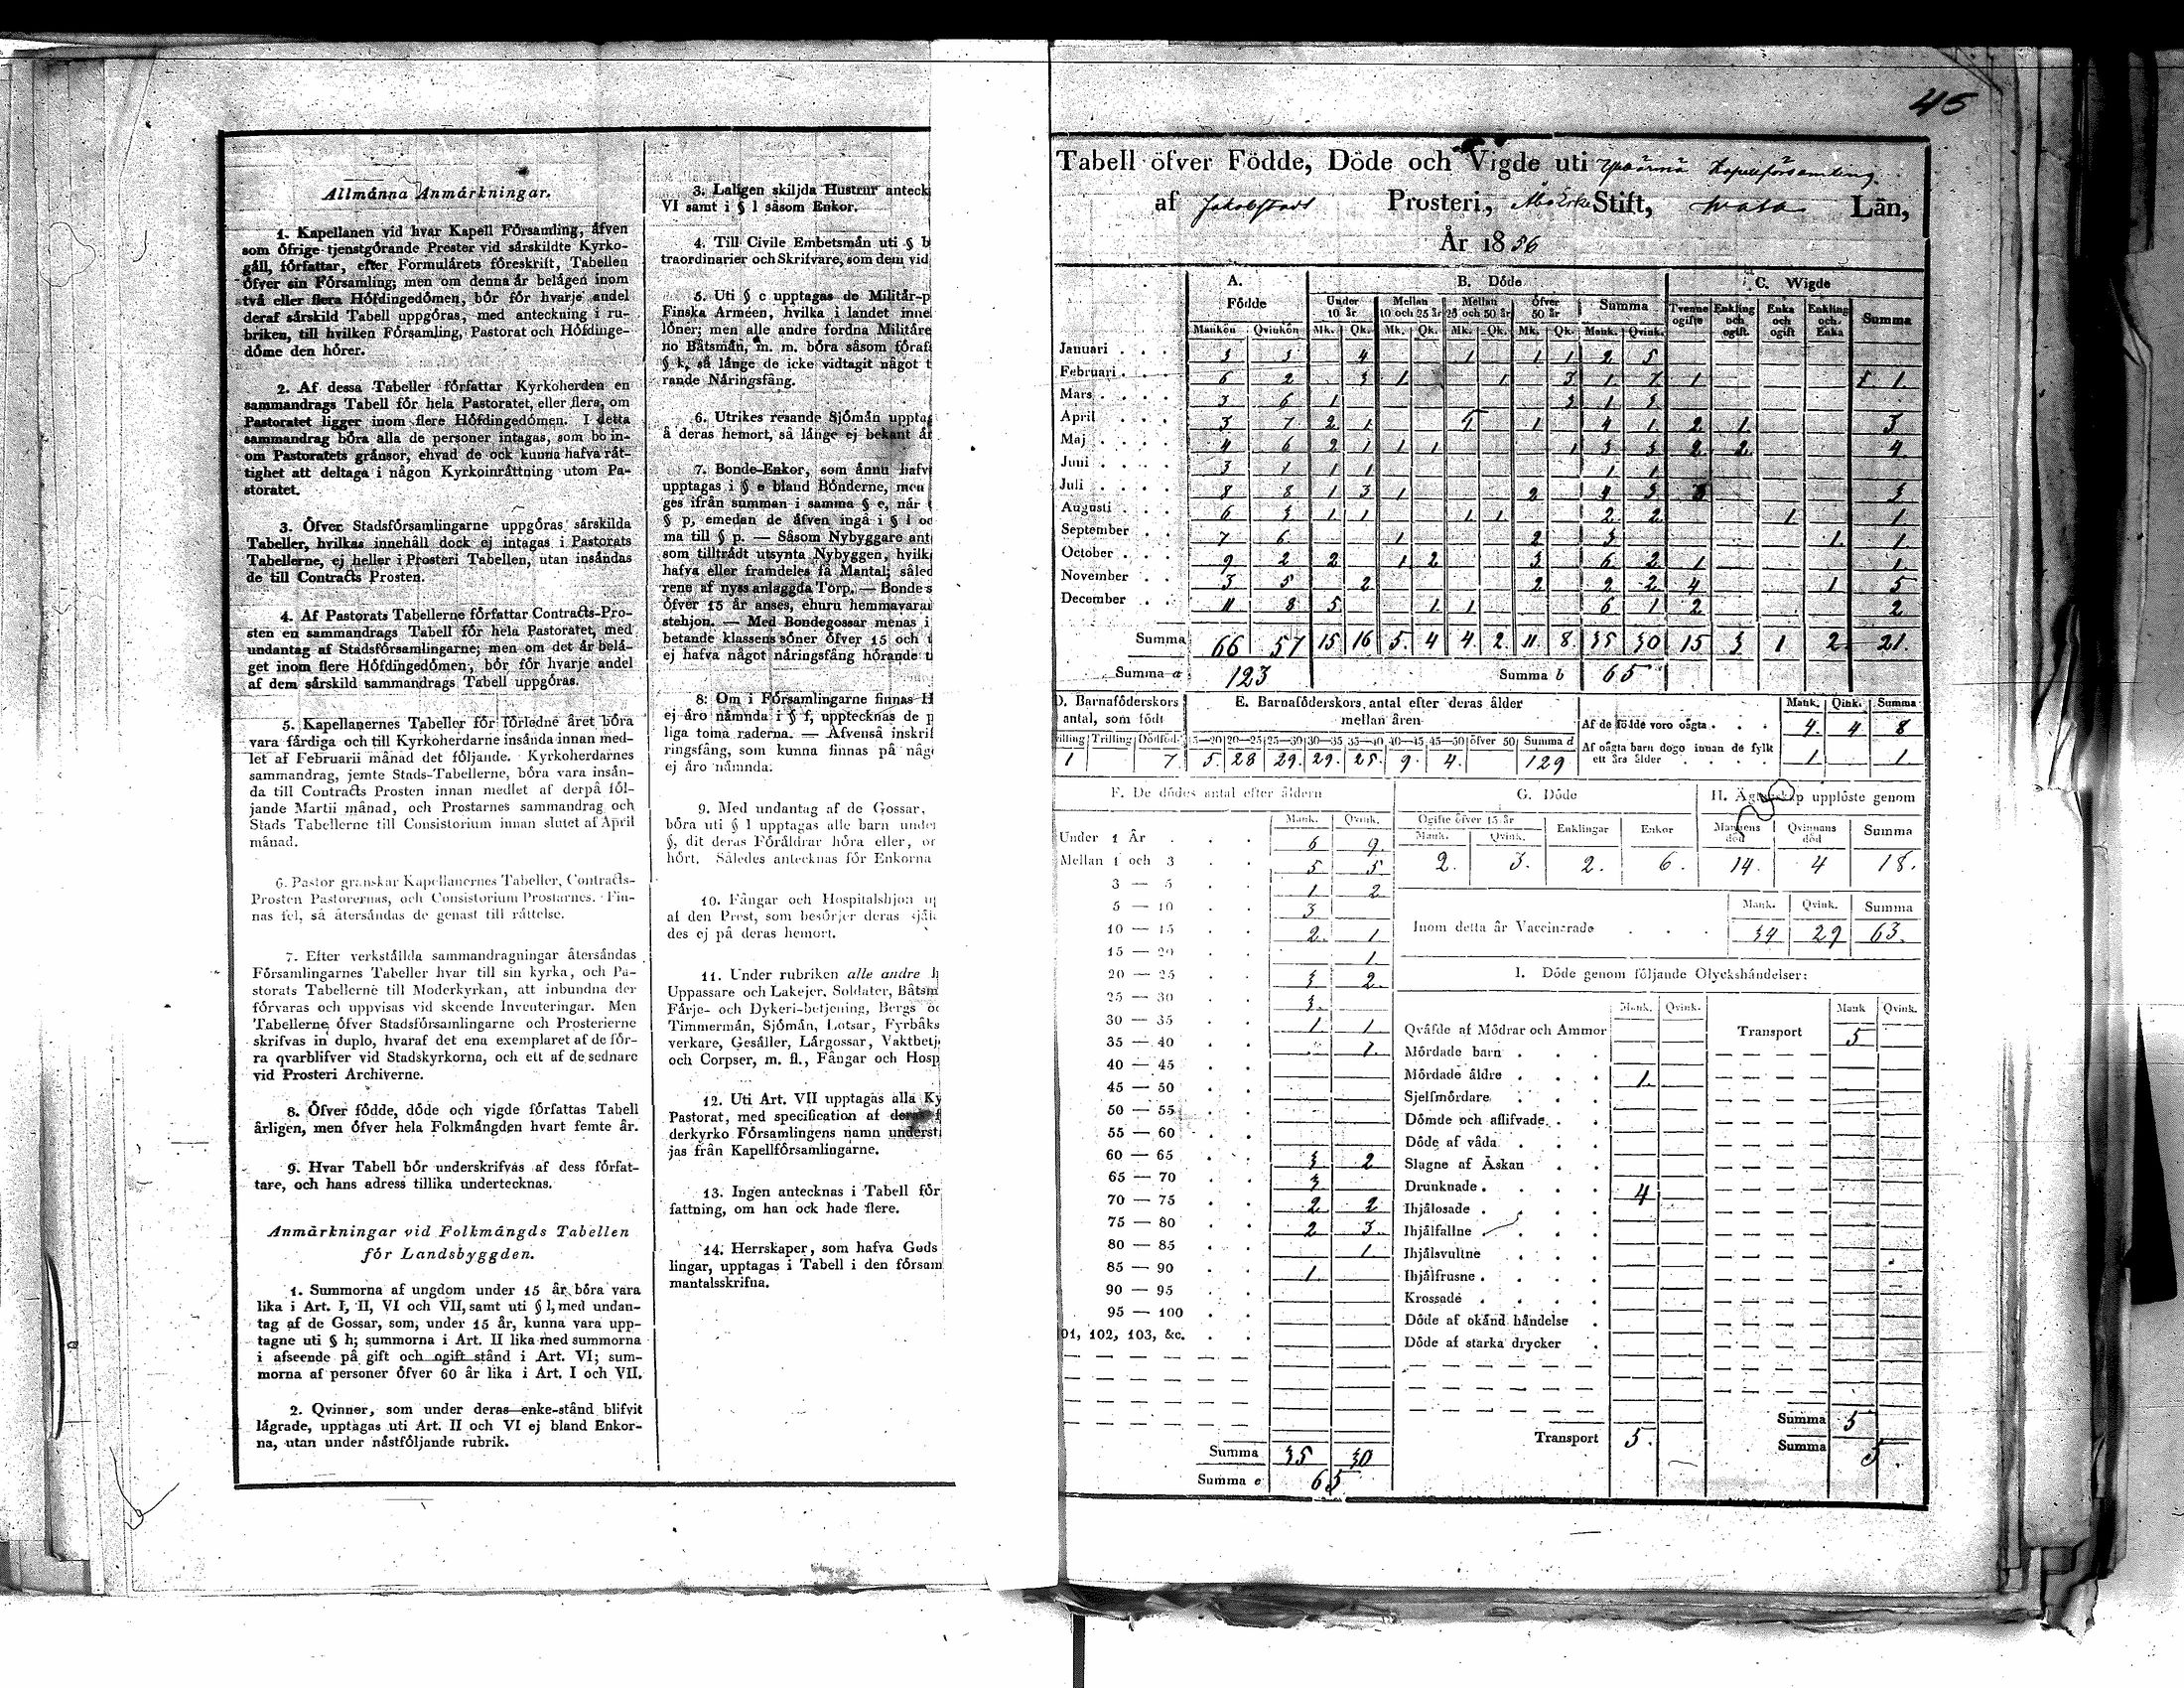 Allmánna Anmárkningar.
1. Kapellanen vid hvar Kapell Fórsamling, åfven
som ófrige tjenstgórande Prester vid sårskildte Kyrko-
gåll, fórfattar, efter Formulårets fóreskrift, Tabellen
ófver sin Fórsamling; men om denna år belågen inom
två eller flera Hófdingedómen, bór fór hvarje andel
deraf sårskild Tabell uppgóras, med anteckning i ru-
briken, till hvilken Fórsamling, Pastorat och Hófdinge-
dóme den hórer.
2. Af dessa Tabeller fórfattar Kyrkoherden en
sammandrags Tabell fór hela Pastoratet, eller flera, om
Pastoratet ligger inom flere Hófdingedómen. I detta
sammandrag bóra alla de personer intagas, som bo in-
om Pastoratets grånsor, ehvad de ock kunna hafva råt-
tighet att deltaga i någon Kyrkoinråttning utom Pa-
storatet.
3. Öfver Stadsfórsamlingarne uppgóras sårskilda
Tabeller, hvilkas innehåll dock ej intagas i Pastorats
Tabellerne, ej heller i Prosteri Tabellen, utan insåndas
de till Contracts Prosten.
4. Af Pastorats Tabellerne fórfattar Contracts-Pro-
sten en sammandrags Tabell fór hela Pastoratet, med
undantag af Stadsfórsamlingarne; men om det år belå-
get inom flere Hófdingedómen, bór fór hvarje andel
af dem sårskild sammandrags Tabell uppgóras.
5. Kapellanernes Tabeller fór fórledne året bóra
vara fårdiga och till Kyrkoherdarne insånda innan med-
let af Februarii månad det fóljande. Kyrkoherdarnes
sammandrag, jemte Stads-Tabellerne, bóra vara insån-
da till Contracts Prosten innan medlet af derpå fól-
jande Martii månad, och Prostarnes sammandrag och
Stads Tabellerne till Consistorium innan slutet af April
månad.
6. Pastor granskar Kapellanernes Tabeller, Contracts-
Prosten Pastorernas, och Consistorium Prostarnes. Fin-
nas fel, så återsåndas de genast till råttelse.
7. Efter verkstållda sammandragningar återsåndas
Fórsamlingarnes Tabeller hvar till sin kyrka, och Pa-
storats Tabellerne till Moderkyrkan, att inbundna der
fórvaras och uppvisas vid skeende Inventeringar. Men
Tabellerne ófver Stadsfórsamlingarne och Prosterierne
skrifvas in duplo, hvaraf det ena exemplaret af de fór-
ra qvarblifver vid Stadskyrkorna, och ett af de sednare
vid Prosteri Archiverne.
8. Öfver fódde, dóde och vigde fórfattas Tabell
årligen, men ófver hela Folkmångden hvart femte år.
9. Hvar Tabell bór underskrifvas af dess fórfat-
tare, och hans adress tillika undertecknas.
Anmårkningar vid Folkmångds Tabellen
fór Landsbyggden.
1. Summorna af ungdom under 15 år bóra vara
lika i Art. I, II, VI och VII, samt uti § l, med undan-
tag af de Gossar, som, under 15 år, kunna vara upp-
tagne uti § h; summorna i Art. II lika med summorna
i afseende på gift och ogift stånd i Art. VI; sum-
morna af personer ófver 60 år lika i Art. I och VII.
2. Qvinnor, som under deras enke-stånd blifvit
lågrade, upptagas uti Art. II och VI ej bland Enkor-
na, utan under nåstfóljande rubrik.
3. Laligen skiljda Hustrur anteck
VI samt i § l såsom Enkor.
4. Till Civile Embetsmån uti § b
traordinarier och Skrifvare, som dem vid
5. Uti § c upptagas de Militår-p
Finska Arméen, hvilka i landet inne
lóner; men alle andre fordna Militåre
no Båtsmån, m. m. bóra såsom fóraf
§ k, så långe de icke vidtagit något
rande Nåringsfång.
6. Utrikes resande Sjómån upptag
å deras hemort, så långe ej bekant år
7. Bonde-Enkor, som ånnu hafv
upptagas i § e bland Bónderne, men
ges ifrån summan i samma § e, når
§ p, emedan de åfven ingå i § l oc
ma till § p. — Såsom Nybyggare ant
som tilltrådt utsynta Nybyggen, hvilk
hafva eller framdeles få Mantal; såled
rene af nyss anlaggda Torp. — Bonde s
ófver 15 år anses, ehuru hemmavarar
stehjon. — Med Bondegossar menas i
betande klassens sóner ófver 15 och
ej hafva något nåringsfång hórande
8: Om i Fórsamlingarne finnas H
ej åro nåmnda i § f, upptecknas de p
liga toma raderna. — Åfvenså inskrif
ringsfång, som kunna finnas på någ
ej åro nåmnda.
9. Med undantag af de Gossar,
bóra uti § l upptagas alle barn under
§, dit deras Fóråldrar hóra eller, or
hórt. Således antecknas fór Enkorna
10. Fångar och Hospitalshjon up
af den Prest, som besórjer deras sjål
des ej på deras hemort.
11. Under rubriken alle andre
Uppassare och Lakejer, Soldater, Båtsm
Fårje- och Dykeri-betjening, Bergs oc
Timmermån, Sjómån, Lotsar, Fyrbåks
verkare, Gesåller, Lårgossar, Vaktbetj
och Corpser, m. fl., Fångar och Hosp
12. Uti Art. VII upptagas alla Ky
Pastorat, med specification af deras f
derkyrko Fórsamlingens namn underst
jas från Kapellfórsamlingarne.
13. Ingen antecknas i Tabell fór
fattning, om han ock hade flere.
14. Herrskaper, som hafva Gods
lingar, upptagas i Tabell i den fórsam
mantalsskrifna.
45
Tabell öfver Födde, Döde och Vigde uti Kapellförsamling
af Jakobstads Prosteri, Åbo Erke Stift, Wasa Län,
År 1856
A. B. Döde C. Wigde
Födde Under 10 år Mellan 10 och 25 år Mellan 25 och 50 år Öfver 50 år Summa Tvenne ogifte Enkling och ogift Enka och ogift Enkling och Enka Summa
Mankön Qvinkön Mk. Qk. Mk. Qk. Mk. Qk. Mk. Qk. Mank. Qvink.
Januari 3 3 4 1 1 1 2 5
Februari 6 2 3 1 1 3 1 7 1 1
Mars 3 6 1 2 1 3
April 3 7 2 1 1 1 4 1 2 1 3
Maj 4 6 2 1 1 1 1 3 3 2 2 4
Juni 3 1 1 1 1 1
Juli 8 8 1 3 1 2 4 3 3 3
Augusti 6 3 1 1 1 1 2 2 1 1
September 7 6 1 2 3 1 1
October 9 2 2 1 2 3 6 2 1 1
November 3 5 2 2 2 2 4 1 5
December 11 8 5 1 1 6 1 2 2
Summa 66 57 15 16 5 4 4 2 11 8 35 30 15 3 1 2 21
Summa a 123 Summa b 65
D. Barnaföderskors antal, som födt
Tvilling Trilling Dödföd.
1 7
E. Barnaföderskors antal efter deras ålder mellan åren
15—20 20—25 25—30 30—35 35—40 40—45 45—50 öfver 50 Summa d
5. 28 29. 29. 25. 9. 4. 129
Mank. Qink. Summa
Af de födde voro oägta 4. 4 8
Af oägta barn dogo innan de fylt ett års ålder 1 1.
F. De dödes antal efter åldern
Mank. Qvink.
Under 1 År 6 9.
Mellan 1 och 3 5 5
3 — 5 1 2
5 — 10 3
10 — 15 2. 1
15 — 20 1
20 — 25 3 2.
25 — 30 3.
30 — 35 1 1
35 — 40 1.
40 — 45
45 — 50
50 — 55
55 — 60
60 — 65 3 2
65 — 70 3
70 — 75 2 2
75 — 80 2 3.
80 — 85 1
85 — 90 1
90 — 95
95 — 100
01, 102, 103, &c.
Summa 35 30
Summa e 65
G. Döde
Ogifte öfver 15 år Enklingar Enkor
Mank. Qvink.
2. 3. 2. 6.
H. Ägtenskap upplöste genom
Mannens död Qvinnans död Summa
14. 4 18.
Mank. Qvink. Summa
Inom detta år Vaccinerade 34 29 63.
I. Döde genom följande Olyckshändelser:
Mank. Qvink.
Qväfde af Mödrar och Ammor
Mördade barn
Mördade äldre 1.
Sjelfmördare
Dömde och aflifvade
Döde af våda
Slagne af Åskan
Drunknade 4
Ihjälosade
Ihjälfallne
Ihjälsvultne
Ihjälfrusne
Krossade
Döde af okänd händelse
Döde af starka drycker
Transport 5.
Mank Qvink.
Transport 5
Summa 5
Summa 5.